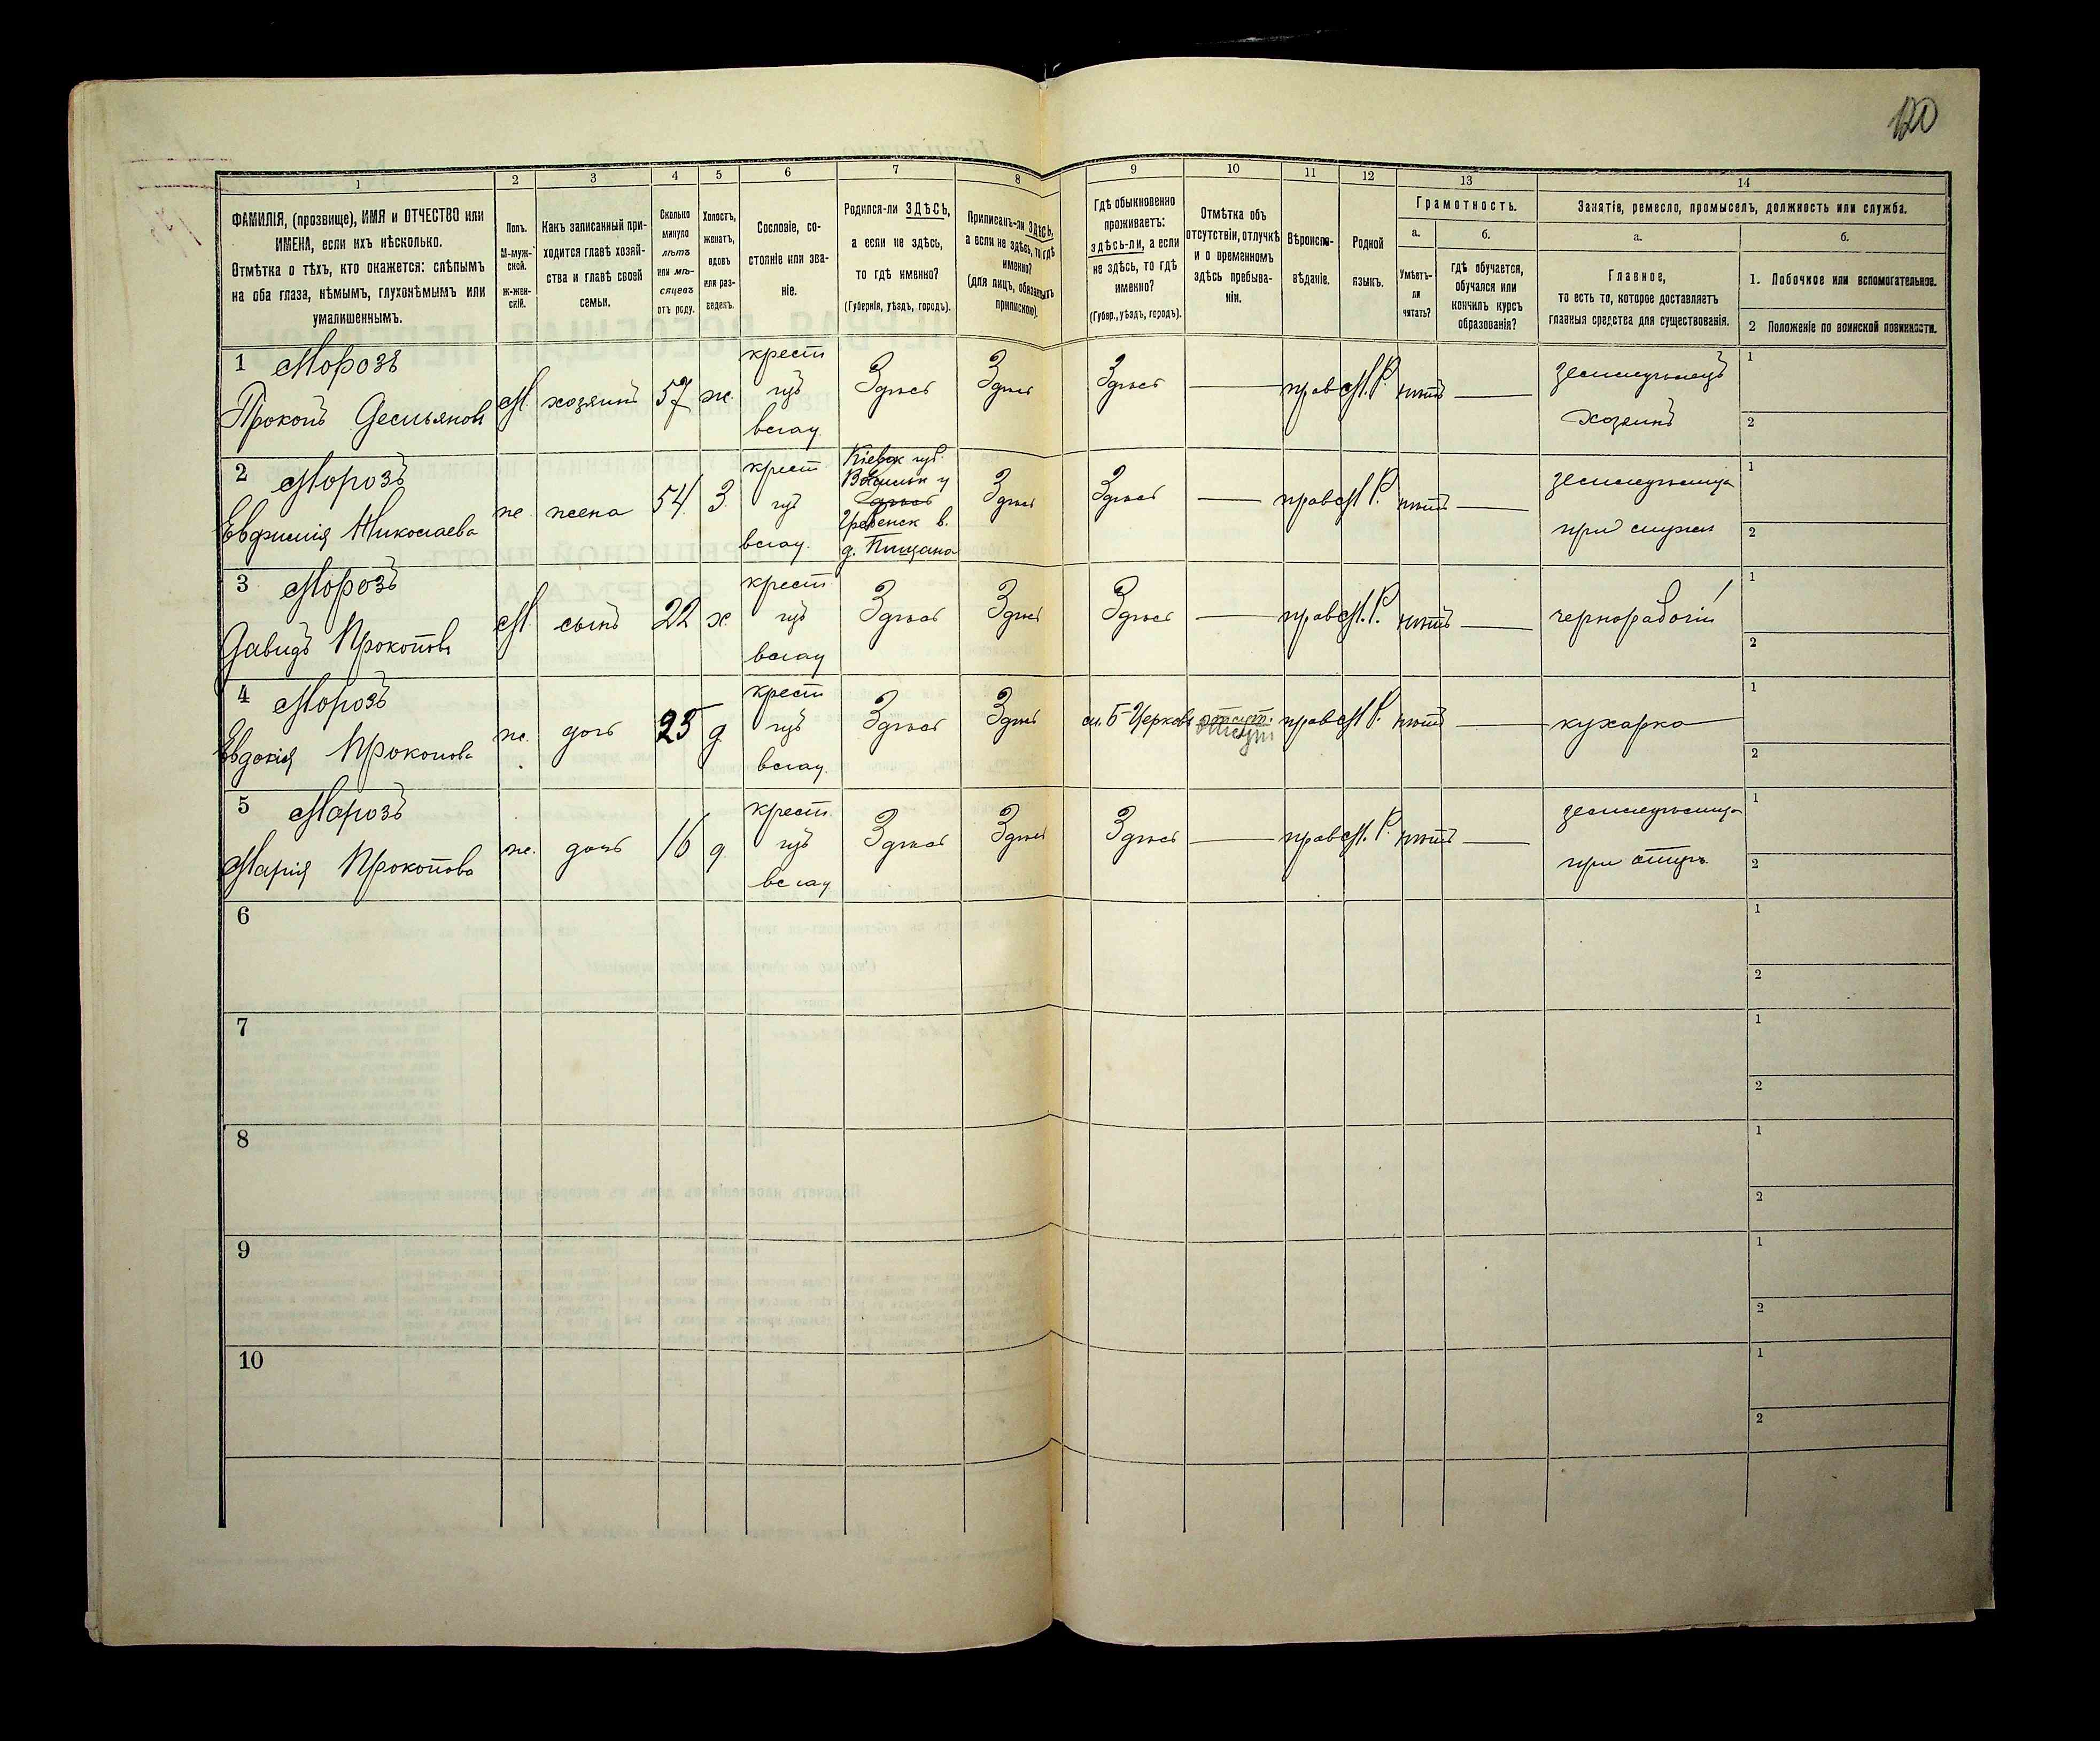 120
1
2
3
4
5
6
7
8
9
10
11
12
13
14
ФАМИЛІЯ, (прозвище), ИМЯ и ОТЧЕСТВО или
ИМЕНА, если ихъ нѣсколько.
Отмѣтка о тѣхъ, кто окажется: слѣпымъ
на оба глаза, нѣмымъ, глухонѣмымъ или
умалишеннымъ.
Полъ.
М-муж-
ской.
ж-жен-
скій.
Какъ записанный при-
ходится главѣ хозяй-
ства и главѣ своей
семьи.
Сколько
минуло
лѣтъ
или мѣ-
сяцевъ
отъ роду.
Холостъ,
женатъ,
вдовъ
или раз-
веденъ.
Сословіе, со-
стояніе или зва-
ніе.
Родился-ли ЗДѢСЬ,
а если не здѣсь,
то гдѣ именно?
(Губернія, уѣздъ, городъ).
Приписанъ-ли ЗДѢСЬ,
а если не здѣсь, то гдѣ
именно?
(для лицъ, обязанныхъ
припискою).
Гдѣ обыкновенно
проживаетъ:
здѣсь-ли, а если
не здѣсь, то гдѣ
именно?
(Губер., уѣздъ, городъ).
Отмѣтка объ
отсутствіи, отлучкѣ
и о временномъ
здѣсь пребыва-
ніи.
Вѣроиспо-
вѣданіе.
Родной
языкъ.
Грамотность.
а.
Умѣетъ-
ли
читать?
б.
гдѣ обучается,
обучался или
кончилъ курсъ
образованія?
Занятіе, ремесло, промыселъ, должность или служба.
а.
Главное,
то есть то, которое доставляетъ
главныя средства для существованія.
б.
1. Побочное или вспомогательное.
2 Положеніе по воинской повинности.
1 Морозъ
Прокопъ Демьяновъ
М. хозяинъ 57 ж.
крест
изъ
влад.
Здѣсь Здѣсь Здѣсь — прав М.Р. нѣтъ —
земледѣлецъ
хозяинъ
1
2
2 Морозъ
Евфимія Николаева
ж. жена 54 З.
крест
изъ
влад.
Кіевск губ.
Васильк у
здѣсь
Гребенск в.
д. Пищана
Здѣсь Здѣсь — прав М Р. нѣтъ —
земледѣлица
при мужѣ
1
2
3 Морозъ
Давидъ Прокоповъ
М сынъ 22 х.
крест
изъ
влад
Здѣсь Здѣсь Здѣсь — прав М.Р. нѣтъ —
чернорабочій
1
2
4 Морозъ
Евдокія Прокопова
ж. дочь 25 д
крест
изъ
влад.
Здѣсь Здѣсь м. Б-Церковь отсут. прав М Р. нѣтъ —
кухарка
1
2
5 Морозъ
Марія Прокопова
ж. дочь 16 д.
крест
изъ
влад
Здѣсь Здѣсь Здѣсь — прав М. Р. нѣтъ —
земледѣлица
при отцѣ
1
2
6
1
2
7
1
2
8
1
2
9
1
2
10
1
2